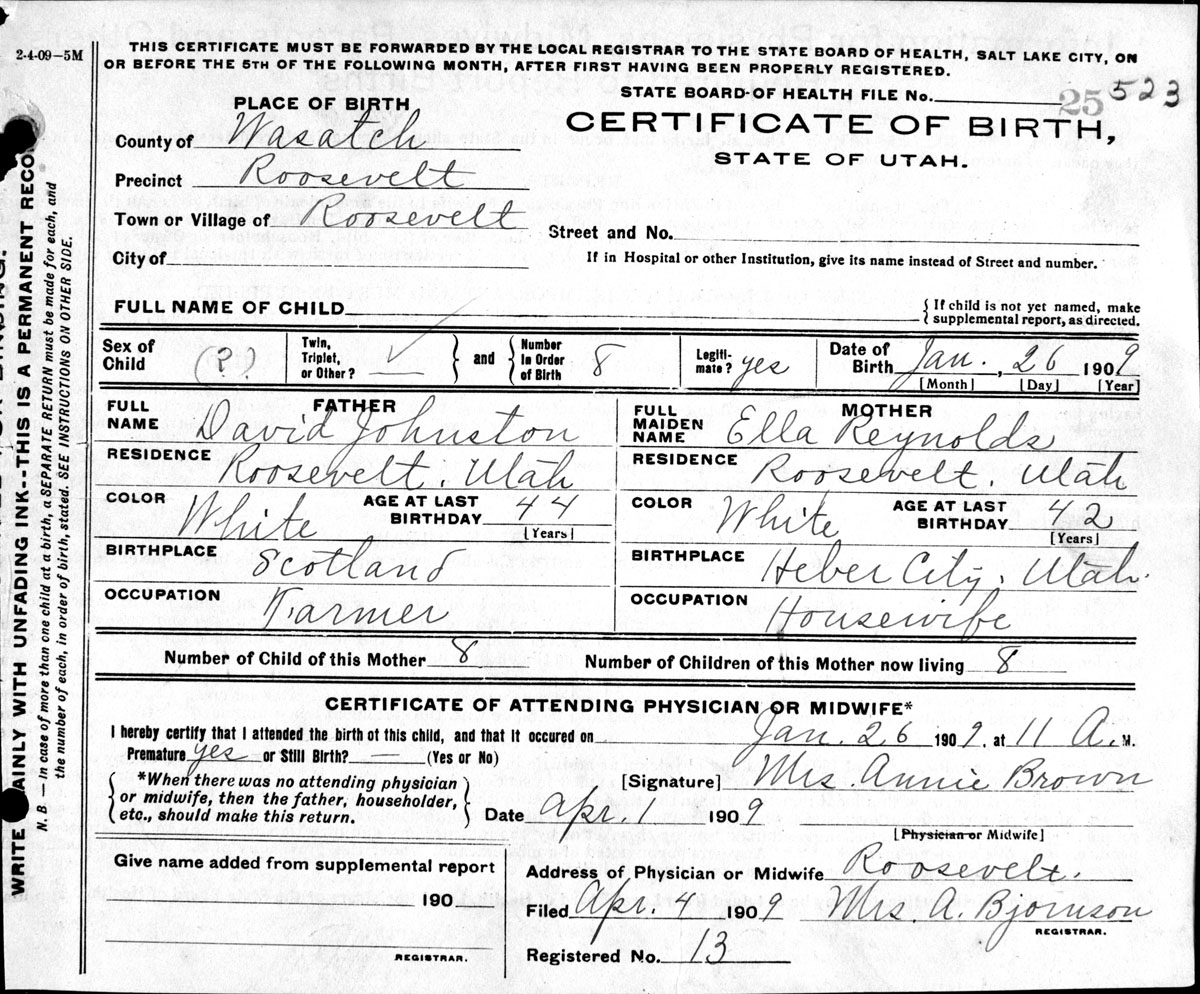 2-4-09—5M
THIS CERTIFICATE MUST BE FORWARDED BY THE LOCAL REGISTRAR TO THE STATE BOARD OF HEALTH, SALT LAKE CITY, ON
OR BEFORE THE 5TH OF THE FOLLOWING MONTH, AFTER FIRST HAVING BEEN PROPERLY REGISTERED.
STATE BOARD OF HEALTH FILE No. 25 523
PLACE OF BIRTH,
CERTIFICATE OF BIRTH,
STATE OF UTAH.
County of Wasatch
Precinct Roosevelt
Town or Village of Roosevelt
Street and No.
City of
If in Hospital or other Institution, give its name instead of Street and number.
FULL NAME OF CHILD
{ If child is not yet named, make
supplemental report, as directed.
Sex of Child (?) Twin, Triplet, or Other? ✓ } and { Number in Order of Birth 8 Legiti-mate? yes Date of Birth Jan. 26 1909
[Month] [Day] [Year]
FATHER
MOTHER
FULL NAME David Johnston
FULL MAIDEN NAME Ella Reynolds
RESIDENCE Roosevelt. Utah
RESIDENCE Roosevelt. Utah
COLOR White AGE AT LAST BIRTHDAY 44 [Years]
COLOR White AGE AT LAST BIRTHDAY 42 [Years]
BIRTHPLACE Scotland
BIRTHPLACE Heber City. Utah.
OCCUPATION Farmer
OCCUPATION Housewife
Number of Child of this Mother 8 Number of Children of this Mother now living 8
CERTIFICATE OF ATTENDING PHYSICIAN OR MIDWIFE*
I hereby certify that I attended the birth of this child, and that it occured on Jan. 26 1909, at 11 A. M.
Premature yes or Still Birth? — (Yes or No)
{ *When there was no attending physician
or midwife, then the father, householder,
etc., should make this return. }
[Signature] Mrs. Annie Brown
Date Apr. 1 1909
[Physician or Midwife]
Give name added from supplemental report
190
REGISTRAR.
Address of Physician or Midwife Roosevelt.
Filed Apr. 4 1909 Mrs. A. Bjornson
REGISTRAR.
Registered No. 13
WRITE PLAINLY WITH UNFADING INK--THIS IS A PERMANENT RECO
N. B. — In case of more than one child at a birth, a SEPARATE RETURN must be made for each, and
the number of each, in order of birth, stated. SEE INSTRUCTIONS ON OTHER SIDE.